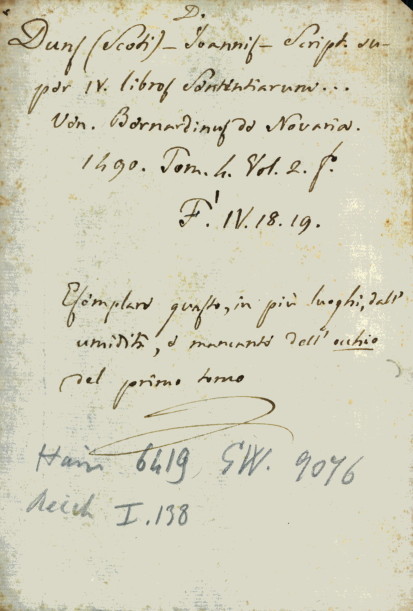 D.
Duns (Scoti) – Ioannis – Script. su-
per IV. libros Sententiarum...
Ven. Bernardinus de Novaria.
1490. Tom. 4. Vol. 2. f.o
F.1 IV. 18. 19.
Esemplare guasto, in più luoghi, dall'
umidità, e mancante dell' occhio
del primo tomo
Hain 6419 GW. 9076
Reich I. 138